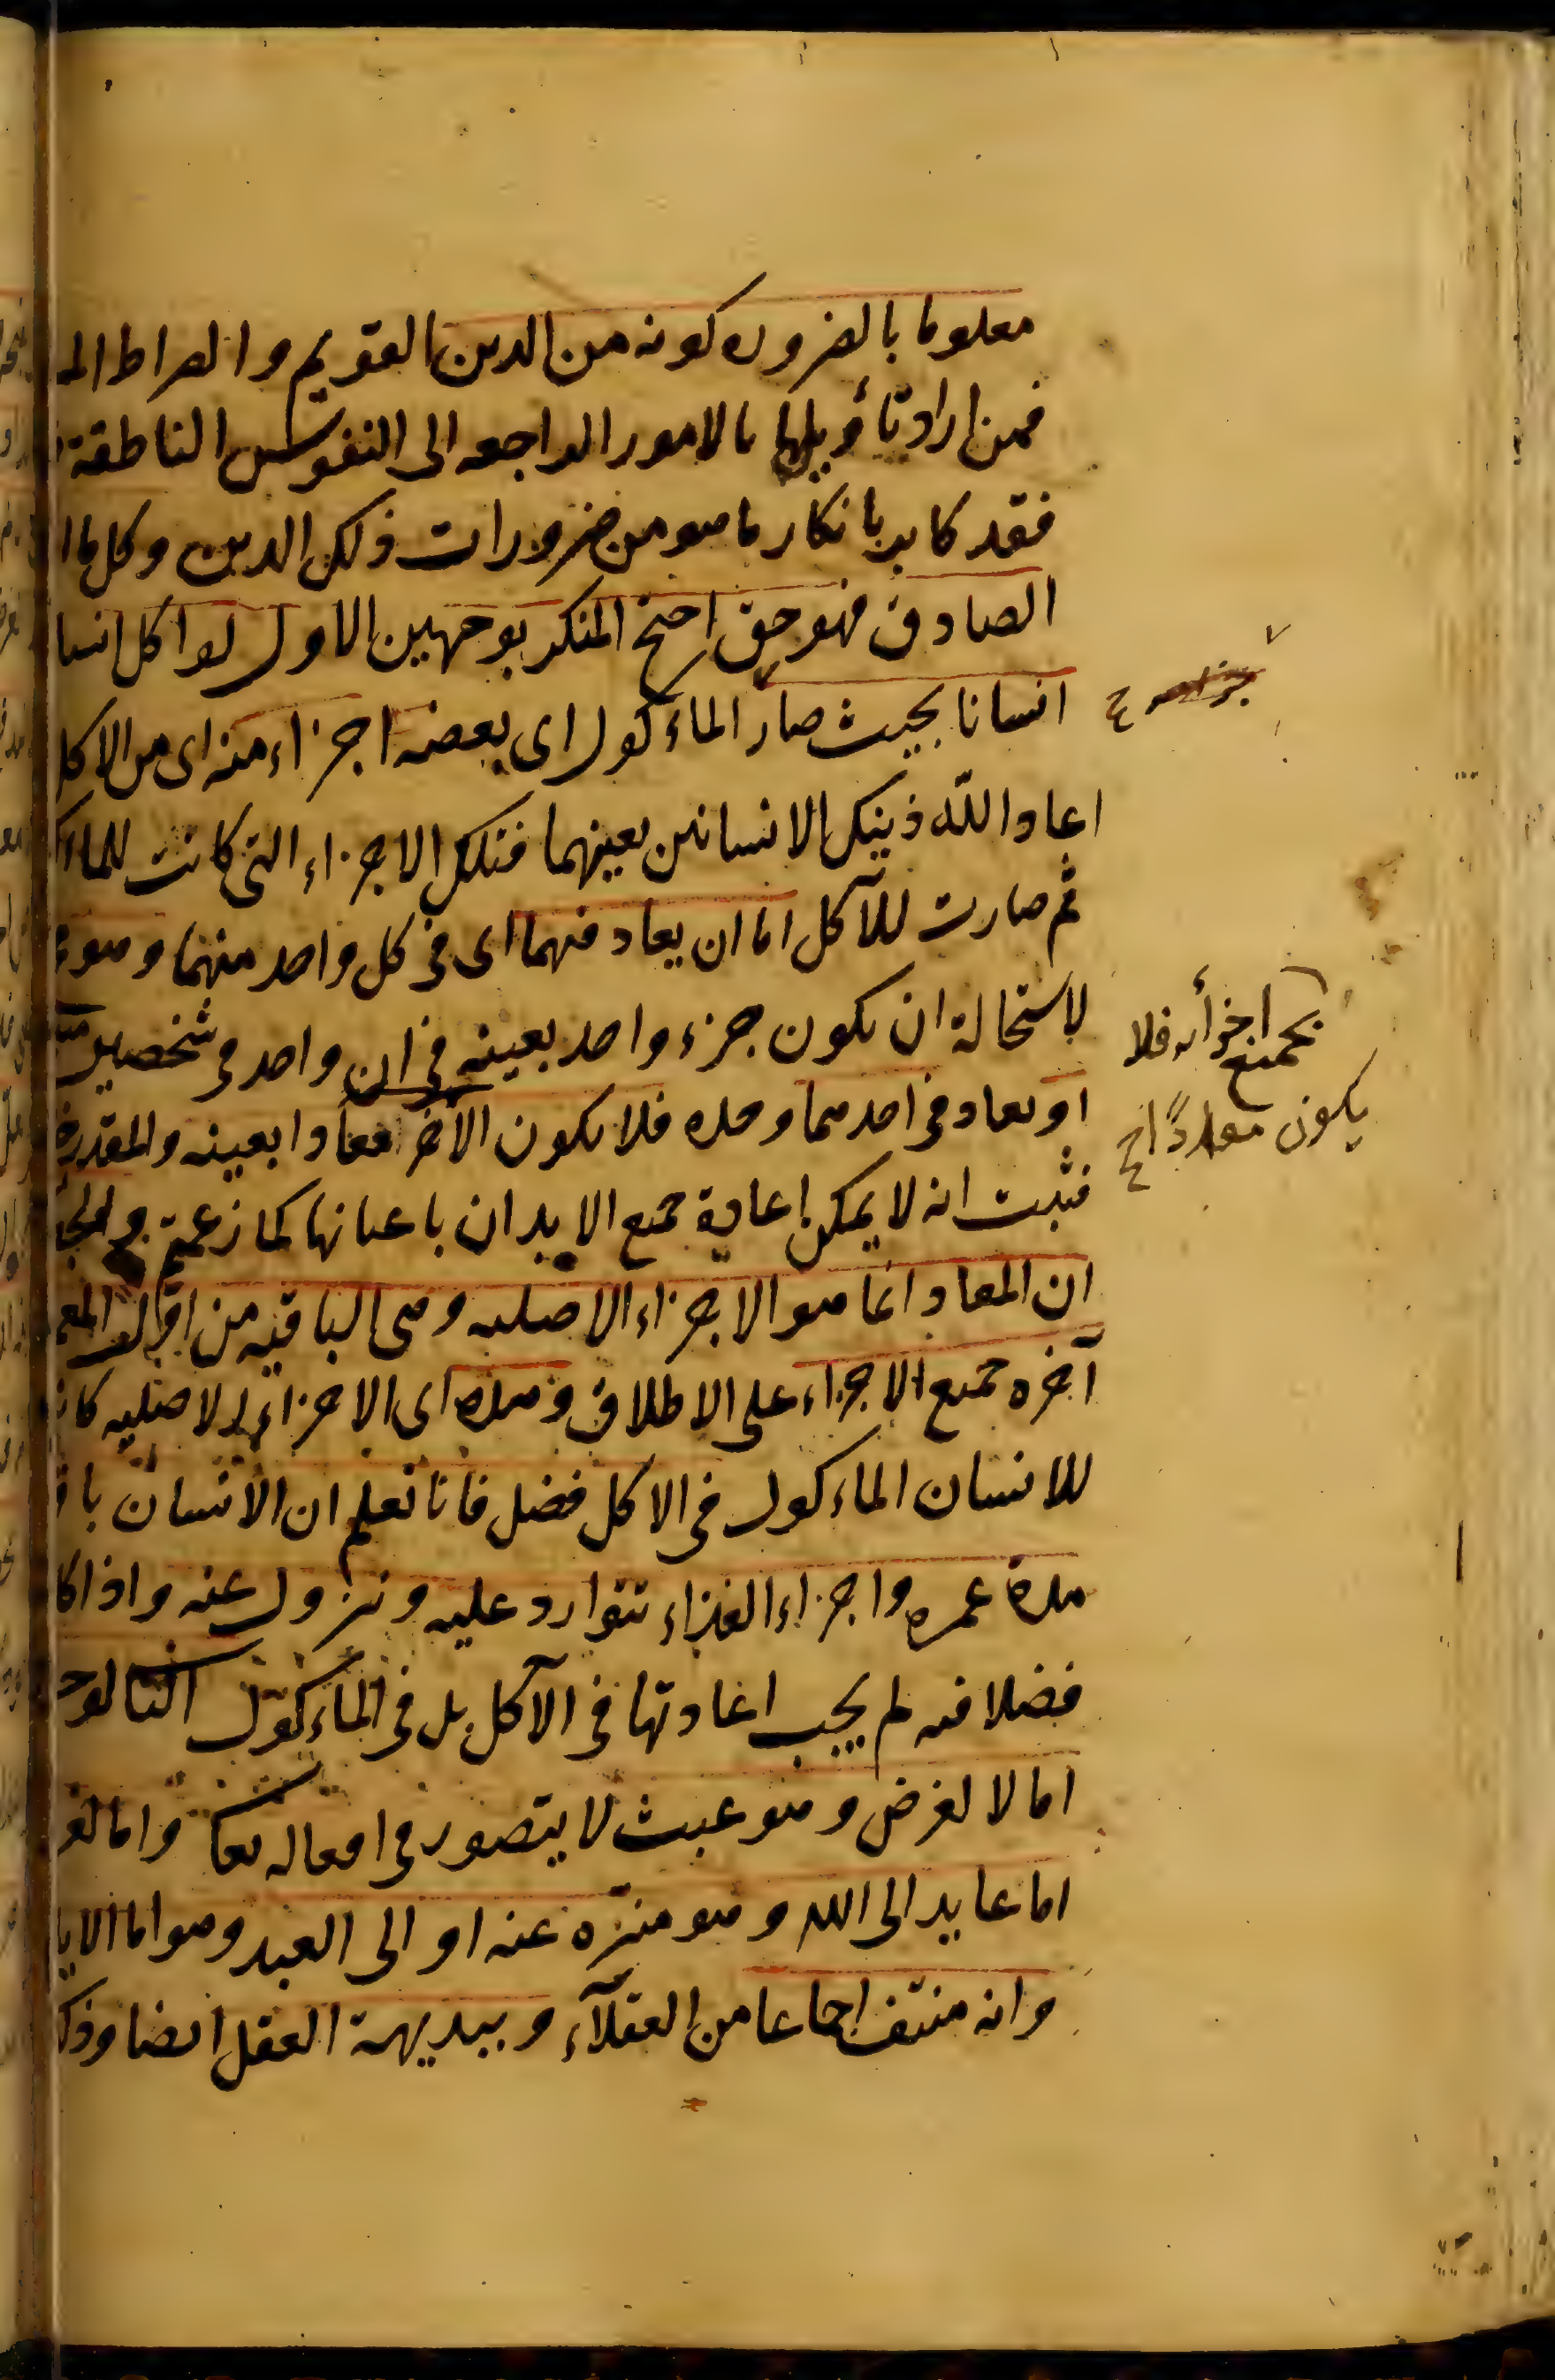 معلوما بالضروره كونه من الدين القويم والصراط الم
فمن اراد تأويلها بالامور الراجعه الى النفوس الناطقة
فقد كابر بانكار ما هو من ضرورات ذلك الدين وكل ما ا
الصادق فهو حق احتج المنكر بوجهين الاول لو اكل انسا
انسانا بحيث صار الماءكول اى بعضه اجزاء منه اى من الاكل
اعاد الله ذينك الانسانين بعينهما فتلك الاجزاء التى كانت للماءك
ثم صارت للآكل اما ان يعاد فيهما اى فى كل واحد منهما وهو
لاستحالة ان يكون جزء واحد بعينه فى ان واحد فى شخصين
او يعاد فى احدهما وحده فلا يكون الآخر معادا بعينه والمقدر
بجميع اجزأه فلا
يكون معادًا ح
فثبت انه لا يمكن اعادة جميع الابدان باعيانها كما زعمتم والجوا
ان المعاد انما هو الاجزاء الاصليه وهى الباقيه من اول العم
آخره جميع الاجزاء على الاطلاق وهذه اى الاجزاء الاصليه كان
للانسان الماءكول فى الاكل فضل فانا نعلم ان الانسان با
مدة عمره واجزاء الغذاء تتوارد عليه وتزول عنه واذا كا
فضلا فيه لم يجب اعادتها فى الآكل بل فى الماءكول الثا لوج
اما لا لغرض وهو عبث لا يتصور فى افعاله تعا واما لغر
اما عايد الى الله وهو منزّه عنه او الى العبد وهو اما الايلا
وانه منتف اجماعا من العقلآء وببديهة العقل ايضا وذلك